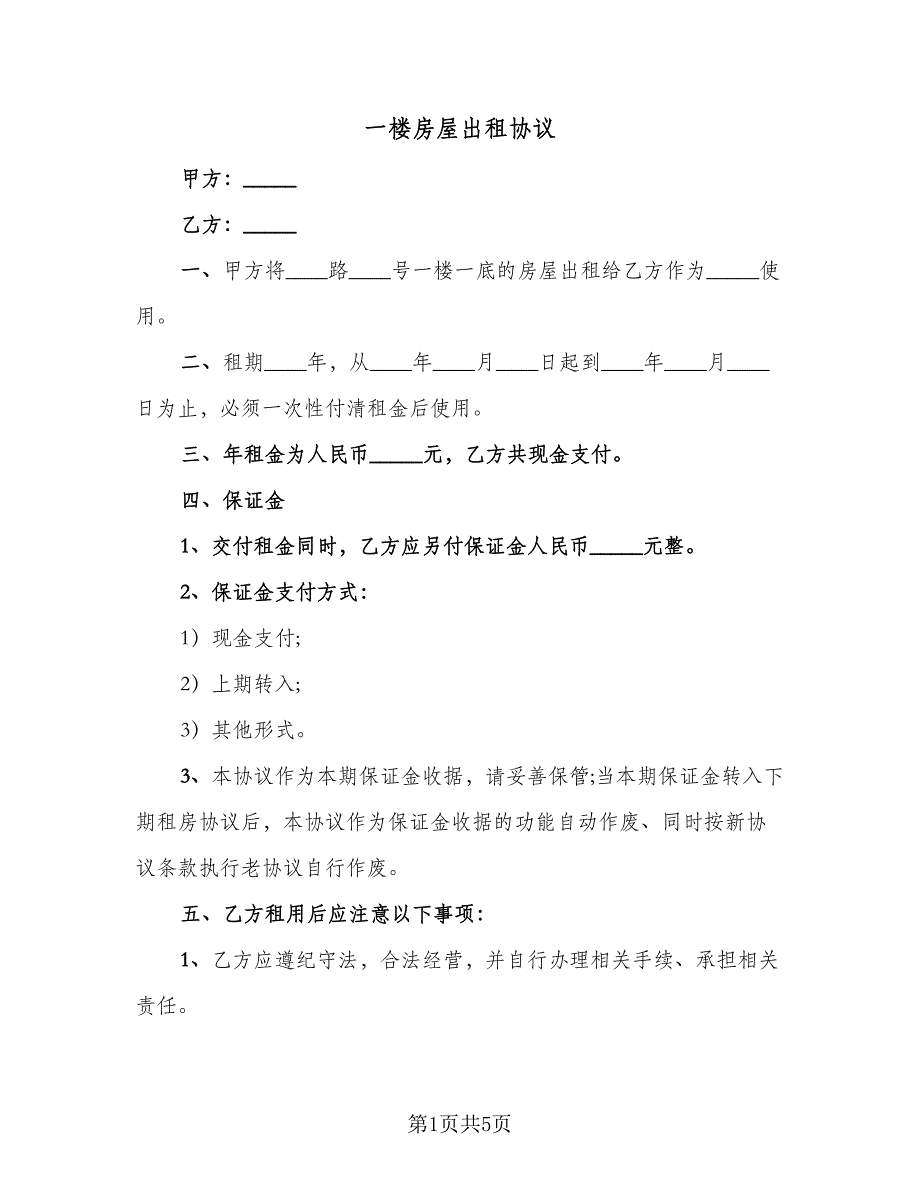 一楼房屋出租协议
甲方：_____
乙方：_____
一、甲方将____路____号一楼一底的房屋出租给乙方作为_____使
用。
二、租期____年，从____年____月____日起到____年____月____
日为止，必须一次性付清租金后使用。
三、年租金为人民币_____元，乙方共现金支付。
四、保证金
1、交付租金同时，乙方应另付保证金人民币_____元整。
2、保证金支付方式：
1）现金支付;
2）上期转入;
3）其他形式。
3、本协议作为本期保证金收据，请妥善保管;当本期保证金转入下
期租房协议后，本协议作为保证金收据的功能自动作废、同时按新协
议条款执行老协议自行作废。
五、乙方租用后应注意以下事项：
1、乙方应遵纪守法，合法经营，并自行办理相关手续、承担相关
责任。
第1页共5页